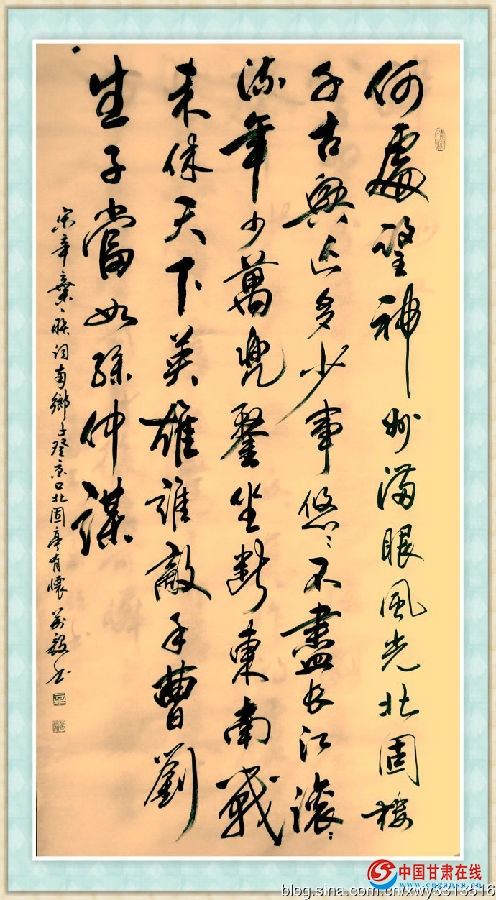 何處望神州滿眼風光北固樓
千古興亡多少事悠々不盡長江滾々
流年少萬兜鍪坐斷東南戰
未休天下英雄誰敵手曹劉
生子當如孫仲謀
宋辛棄疾詞南鄉子登京口北固亭有懷
中国甘肃在线
blog.sina.com.cn/xwy5313616